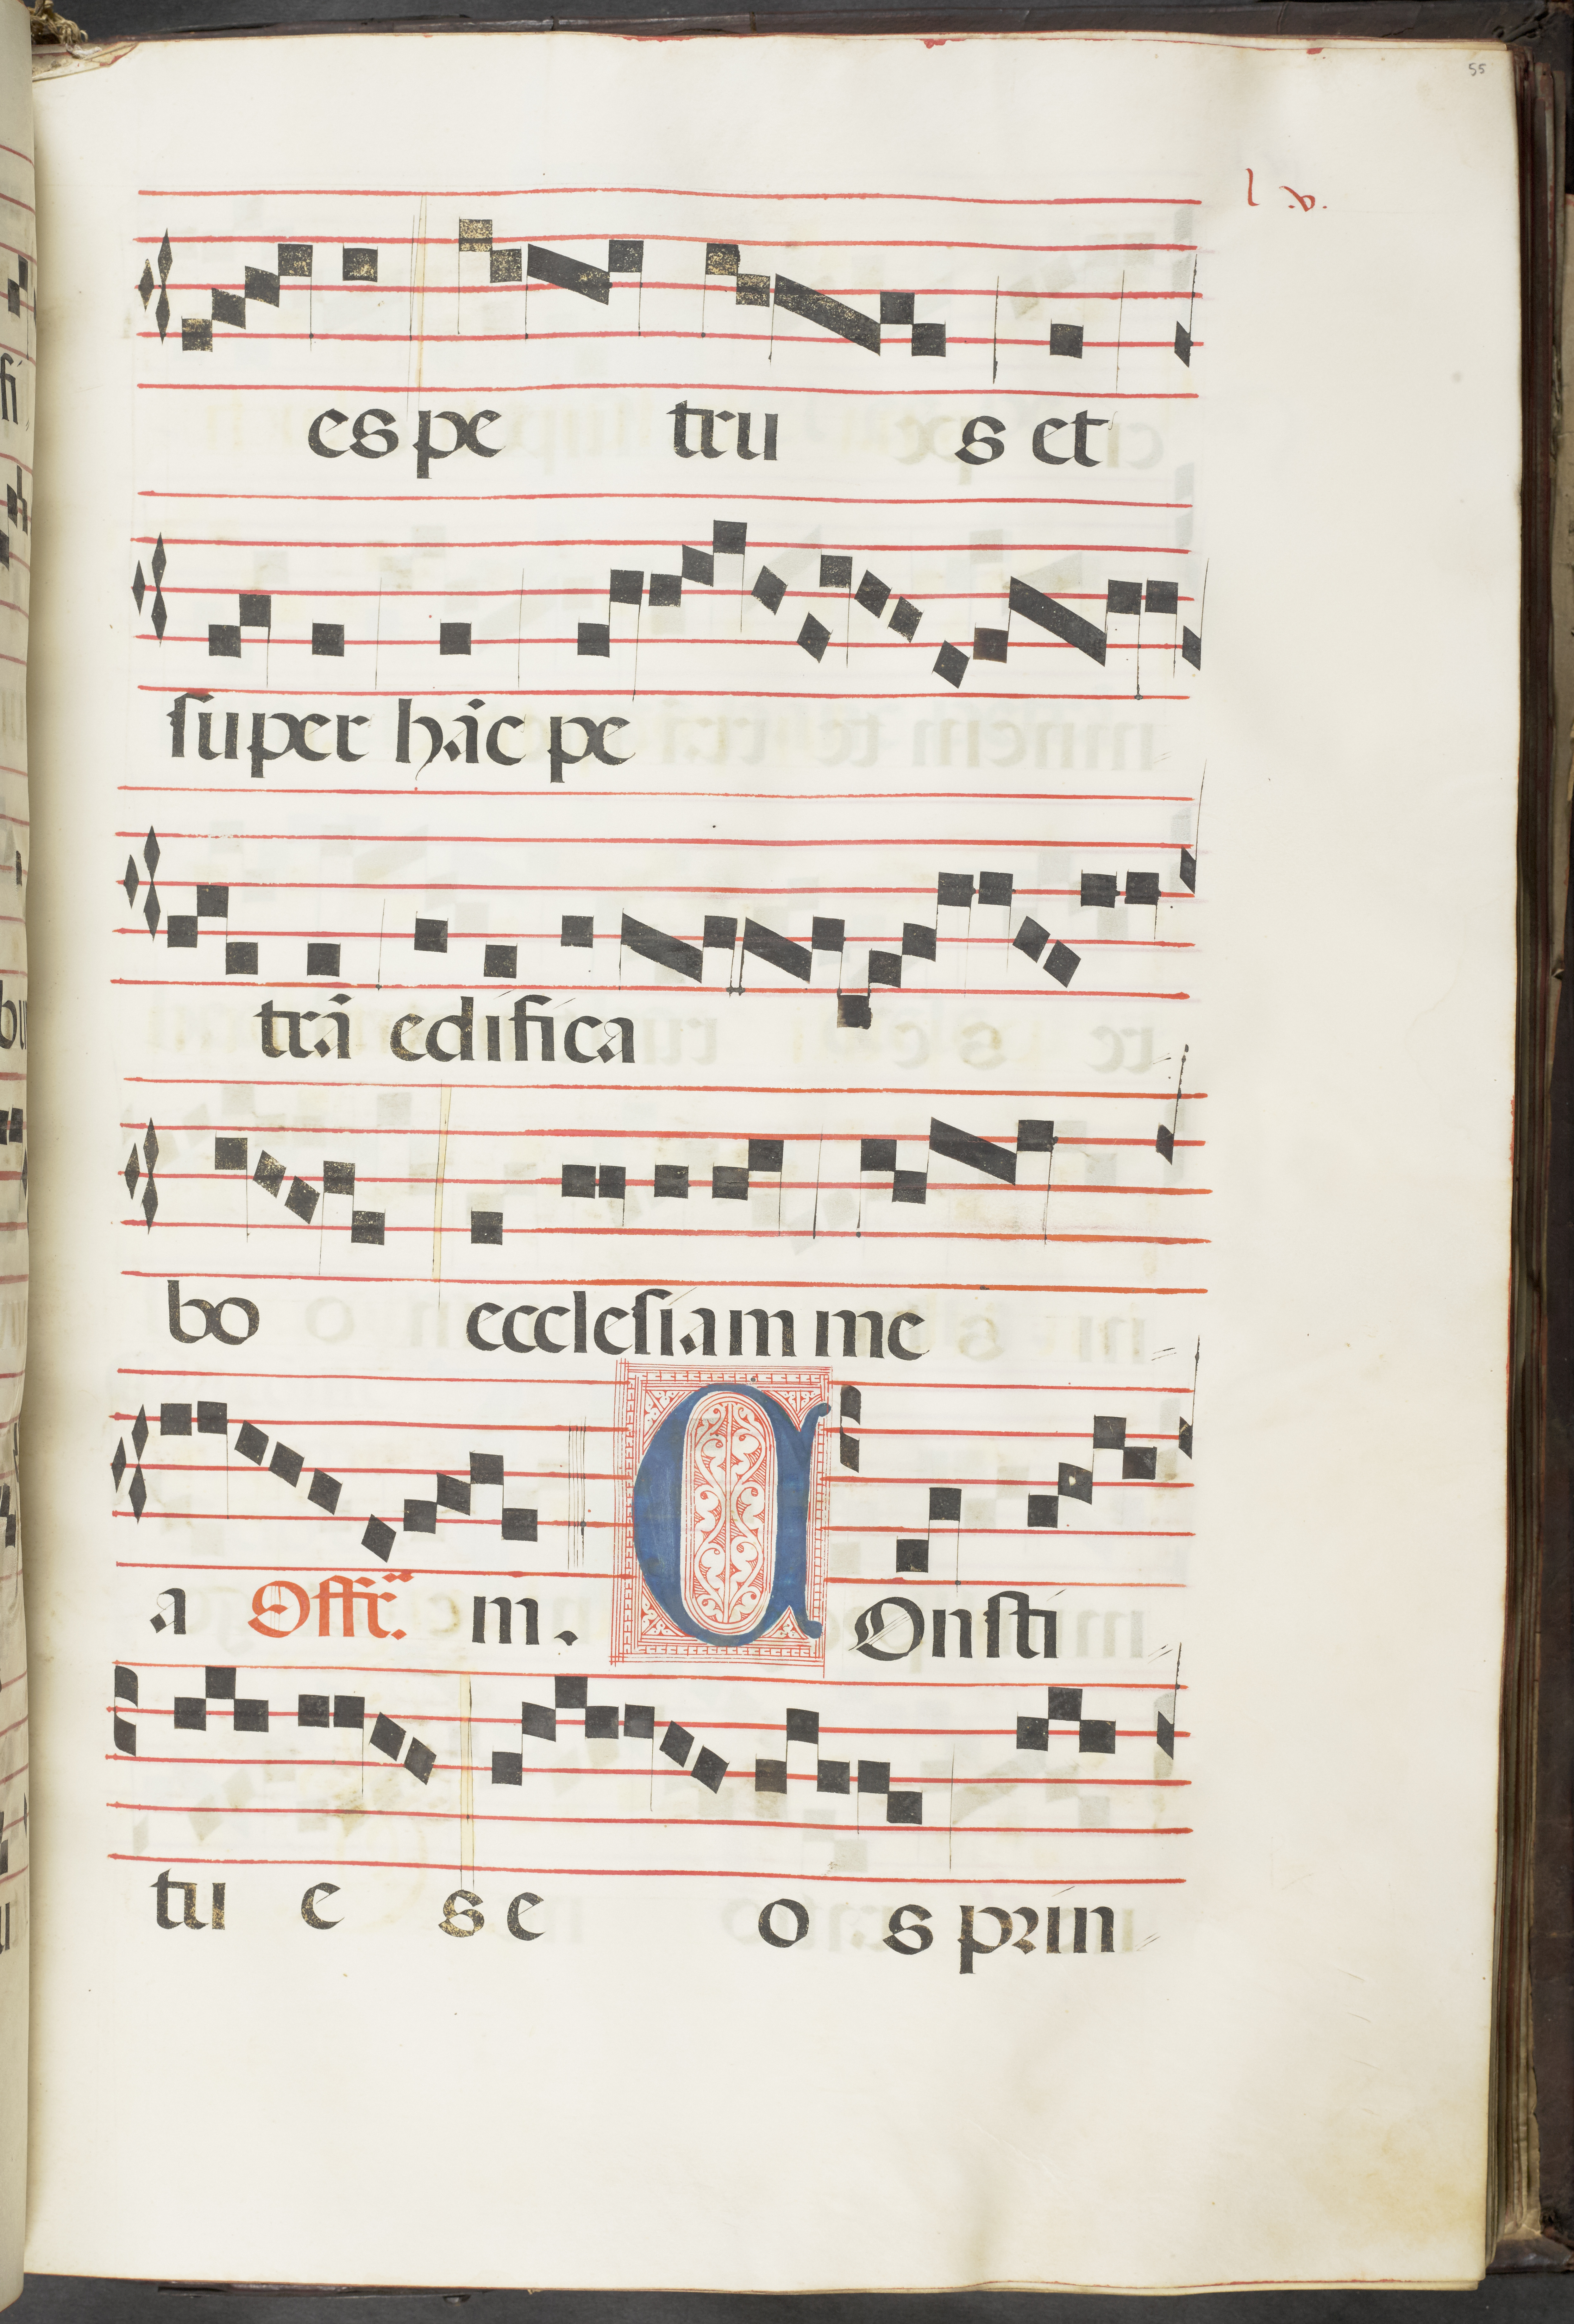 55
l v.
es pe tru s et
ſuper hāc pe
trā edifica
bo eccleſiam me
a Offr̄. m. C Onſti
tu e s e o s prin